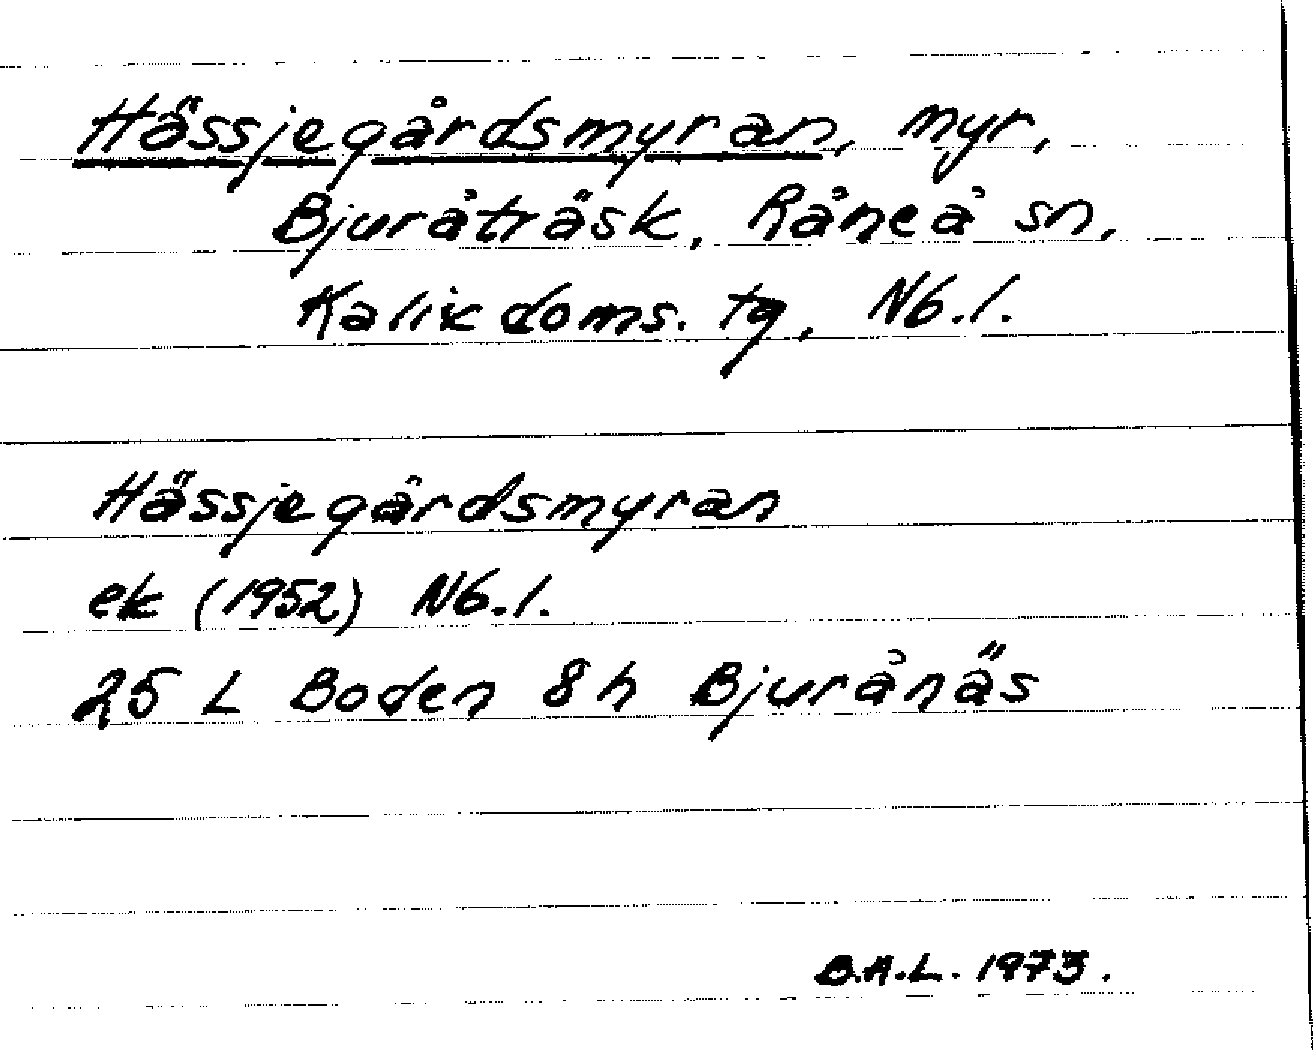 Hässjegårdsmyran, myr,
Bjuråträsk, Råneå sn,
Kalix doms. tg, Nb.l.
Hässjegårdsmyran
ek (1952) Nb.l.
25 L Boden 8 h Bjurånäs
B.H.L. 1973.